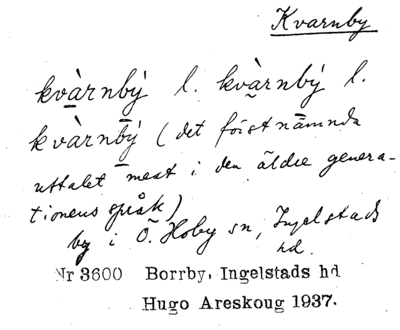 Kvarnby
kvàrnbý l. kvàrnbý l.
kvàrnbý (det först nämnda
uttalet mest i den äldre genera-
tionens språk)
by i Ö. Hoby sn, Ingelstads
hd.
Nr 3600 Borrby, Ingelstads hd
Hugo Areskoug 1937.